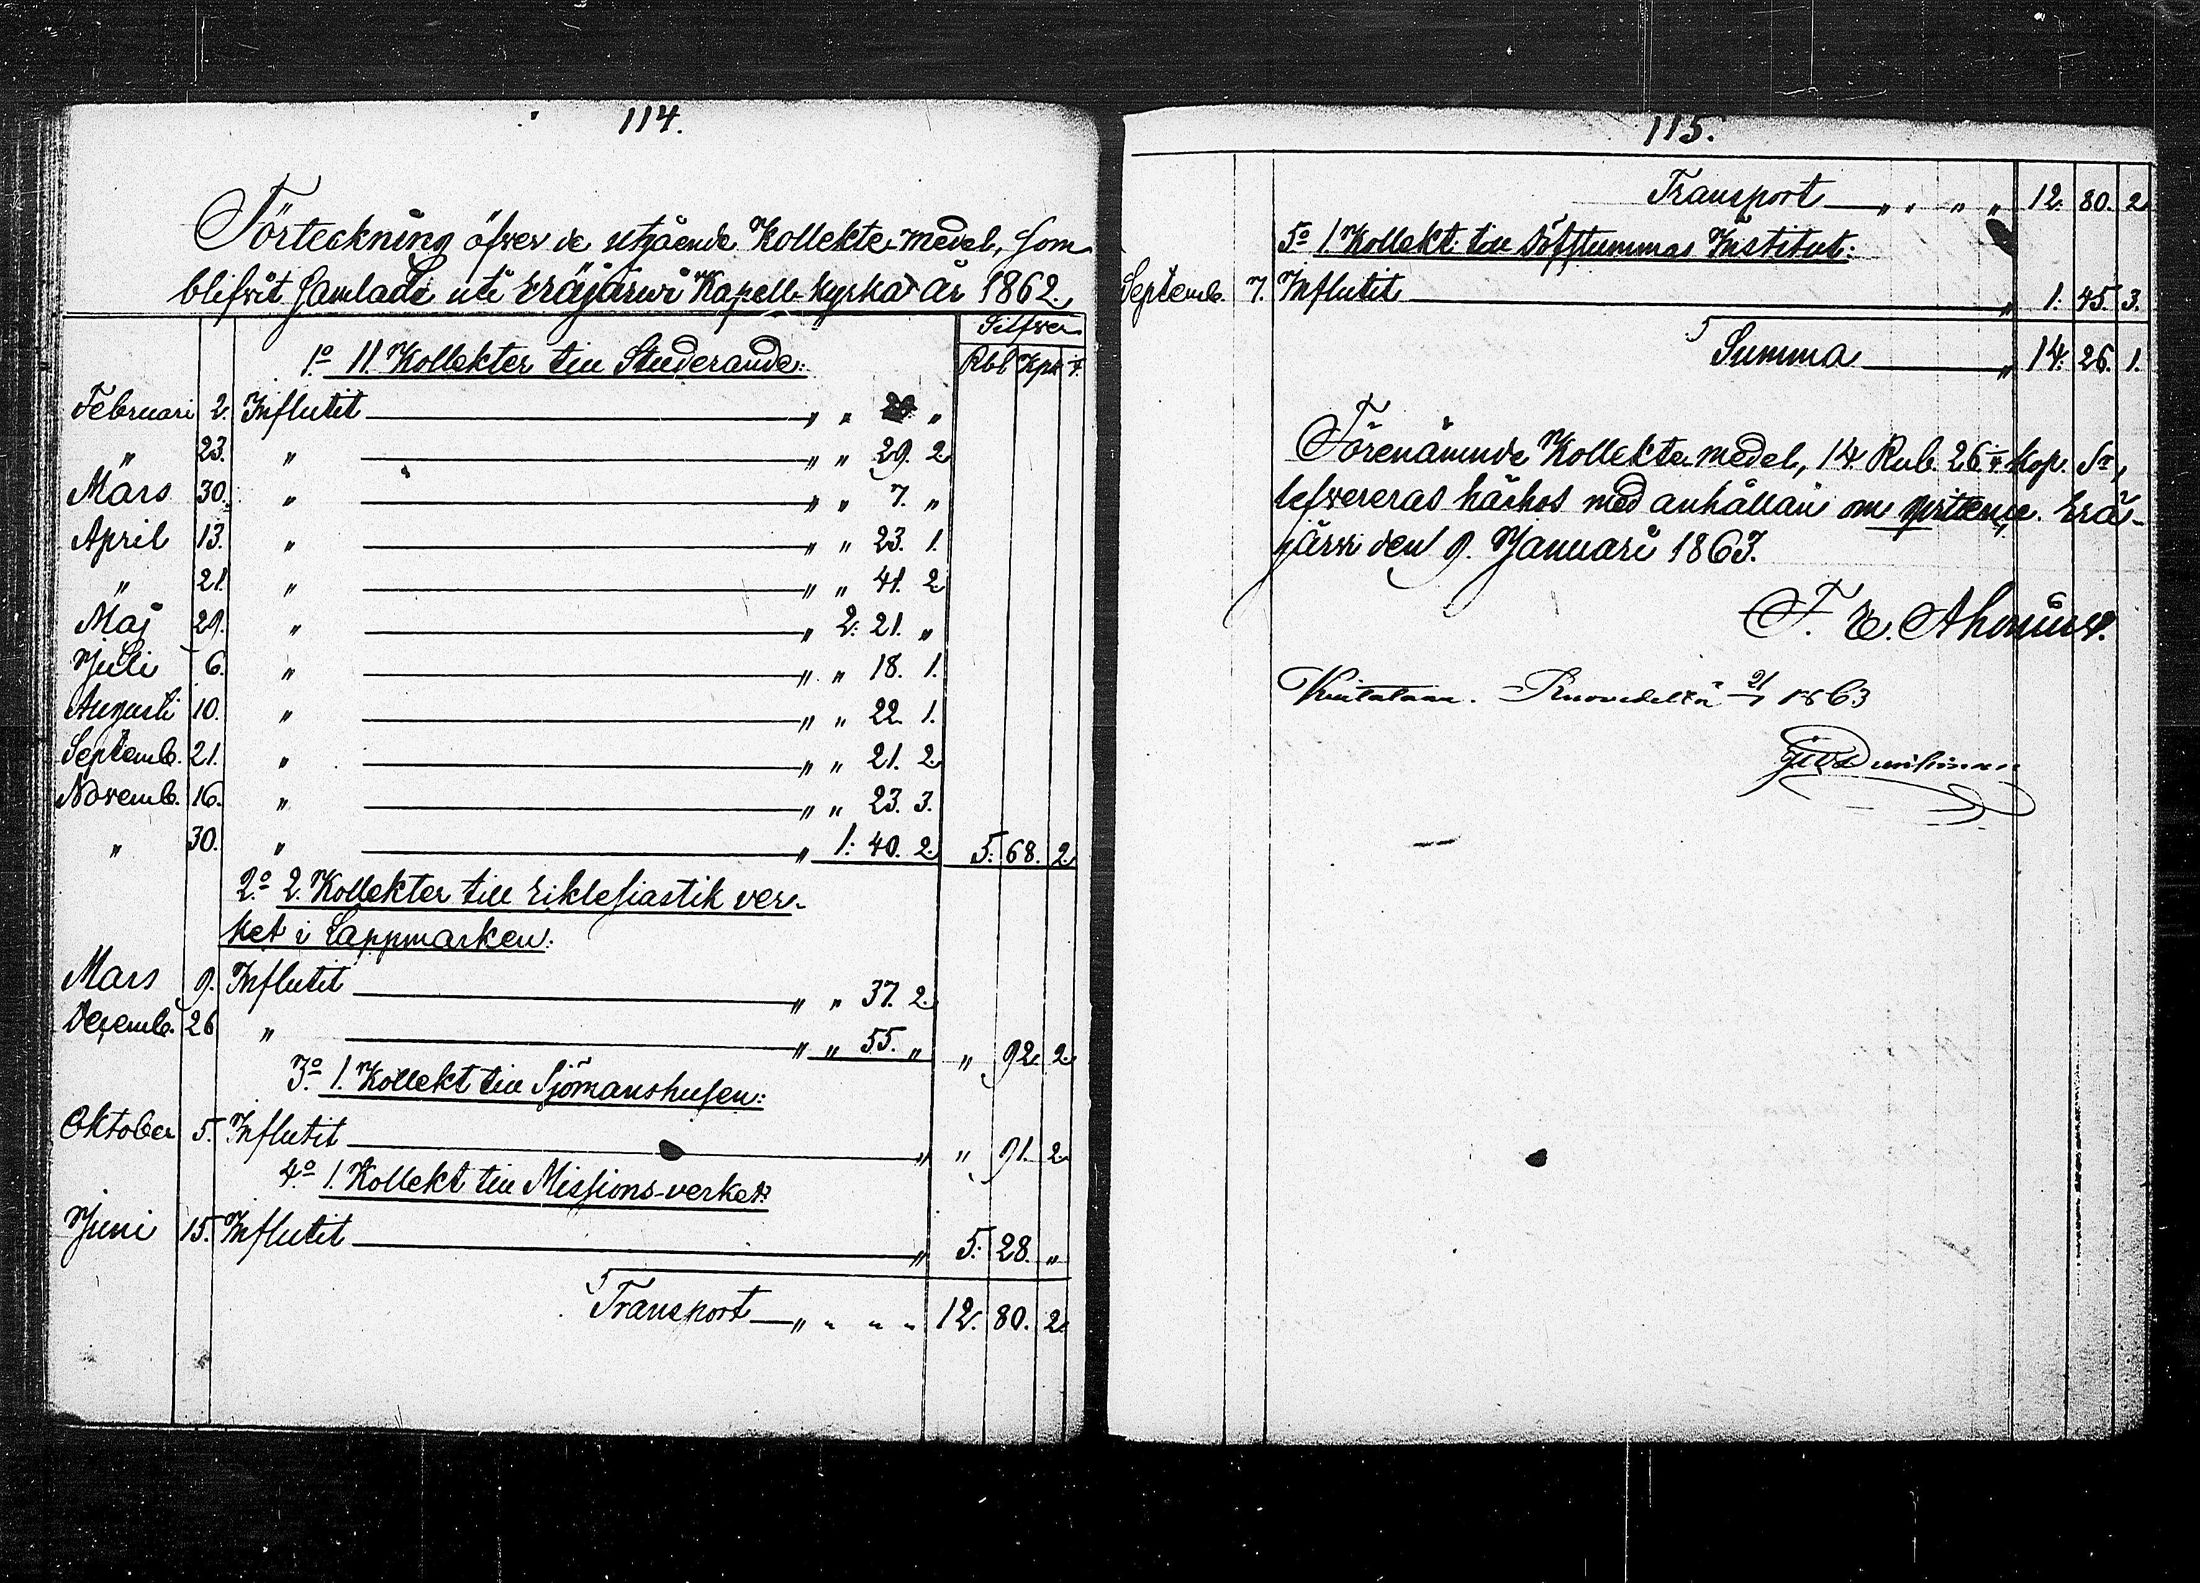 114.
Förteckning öfver de utgående Kollekte-medel, som
blifvit samlade uti Eräjärwi Kapell-kyrka år 1862.
Silfver
1:o 11 Kollekter till Studerande: Rbl Kpk ¼
Februari 2. Influtit „ „ 20. „
„ 23. „ „ „ 29. 2.
Mars 30. „ „ „ 7. „
April 13. „ „ „ 23. 1.
„ 21. „ „ „ 41. 2
Maj 29. „ „ 2: 21. „
Juli 6. „ „ „ 18. 1.
Augusti 10. „ „ „ 22. 1.
Septemb. 21. „ „ „ 21. 2.
Novemb. 16. „ „ „ 23. 3.
„ 30. „ „ 1: 40. 2. 5: 68. 2.
2:o 2. Kollekter till Eiklesiastik ver-
ket i Lappmarken:
Mars 9. Influtit „ „ 37. 2.
Decemb. 26 „ „ „ 55. „ „ 92. 2.
3:o 1. Kollekt till Sjömanshusen:
Oktober 5. Influtit „ „ 91. 2.
4:o 1. Kollekt till Missions-verket:
Juni 15. Influtit „ 5: 28. „
Transport „ „ „ „ 12. 80. 2.
115.
Transport „ „ „ „ 12. 80. 2.
5:o 1. Kollekt till Döfstummas Institut:
Septemb. 7. Influtit „ 1. 45. 3.
Summa „ 14. 26. 1.
Förenämnde Kollekte-medel, 14 Rub. 26 ¼ Kop. Sr,
lefvereras härhos med anhållan om qvittence. Erä-
järvi den 9. Januari 1863.
F. E. Ahonius.
Kvitataan. Ruovedellä 21/1 1863